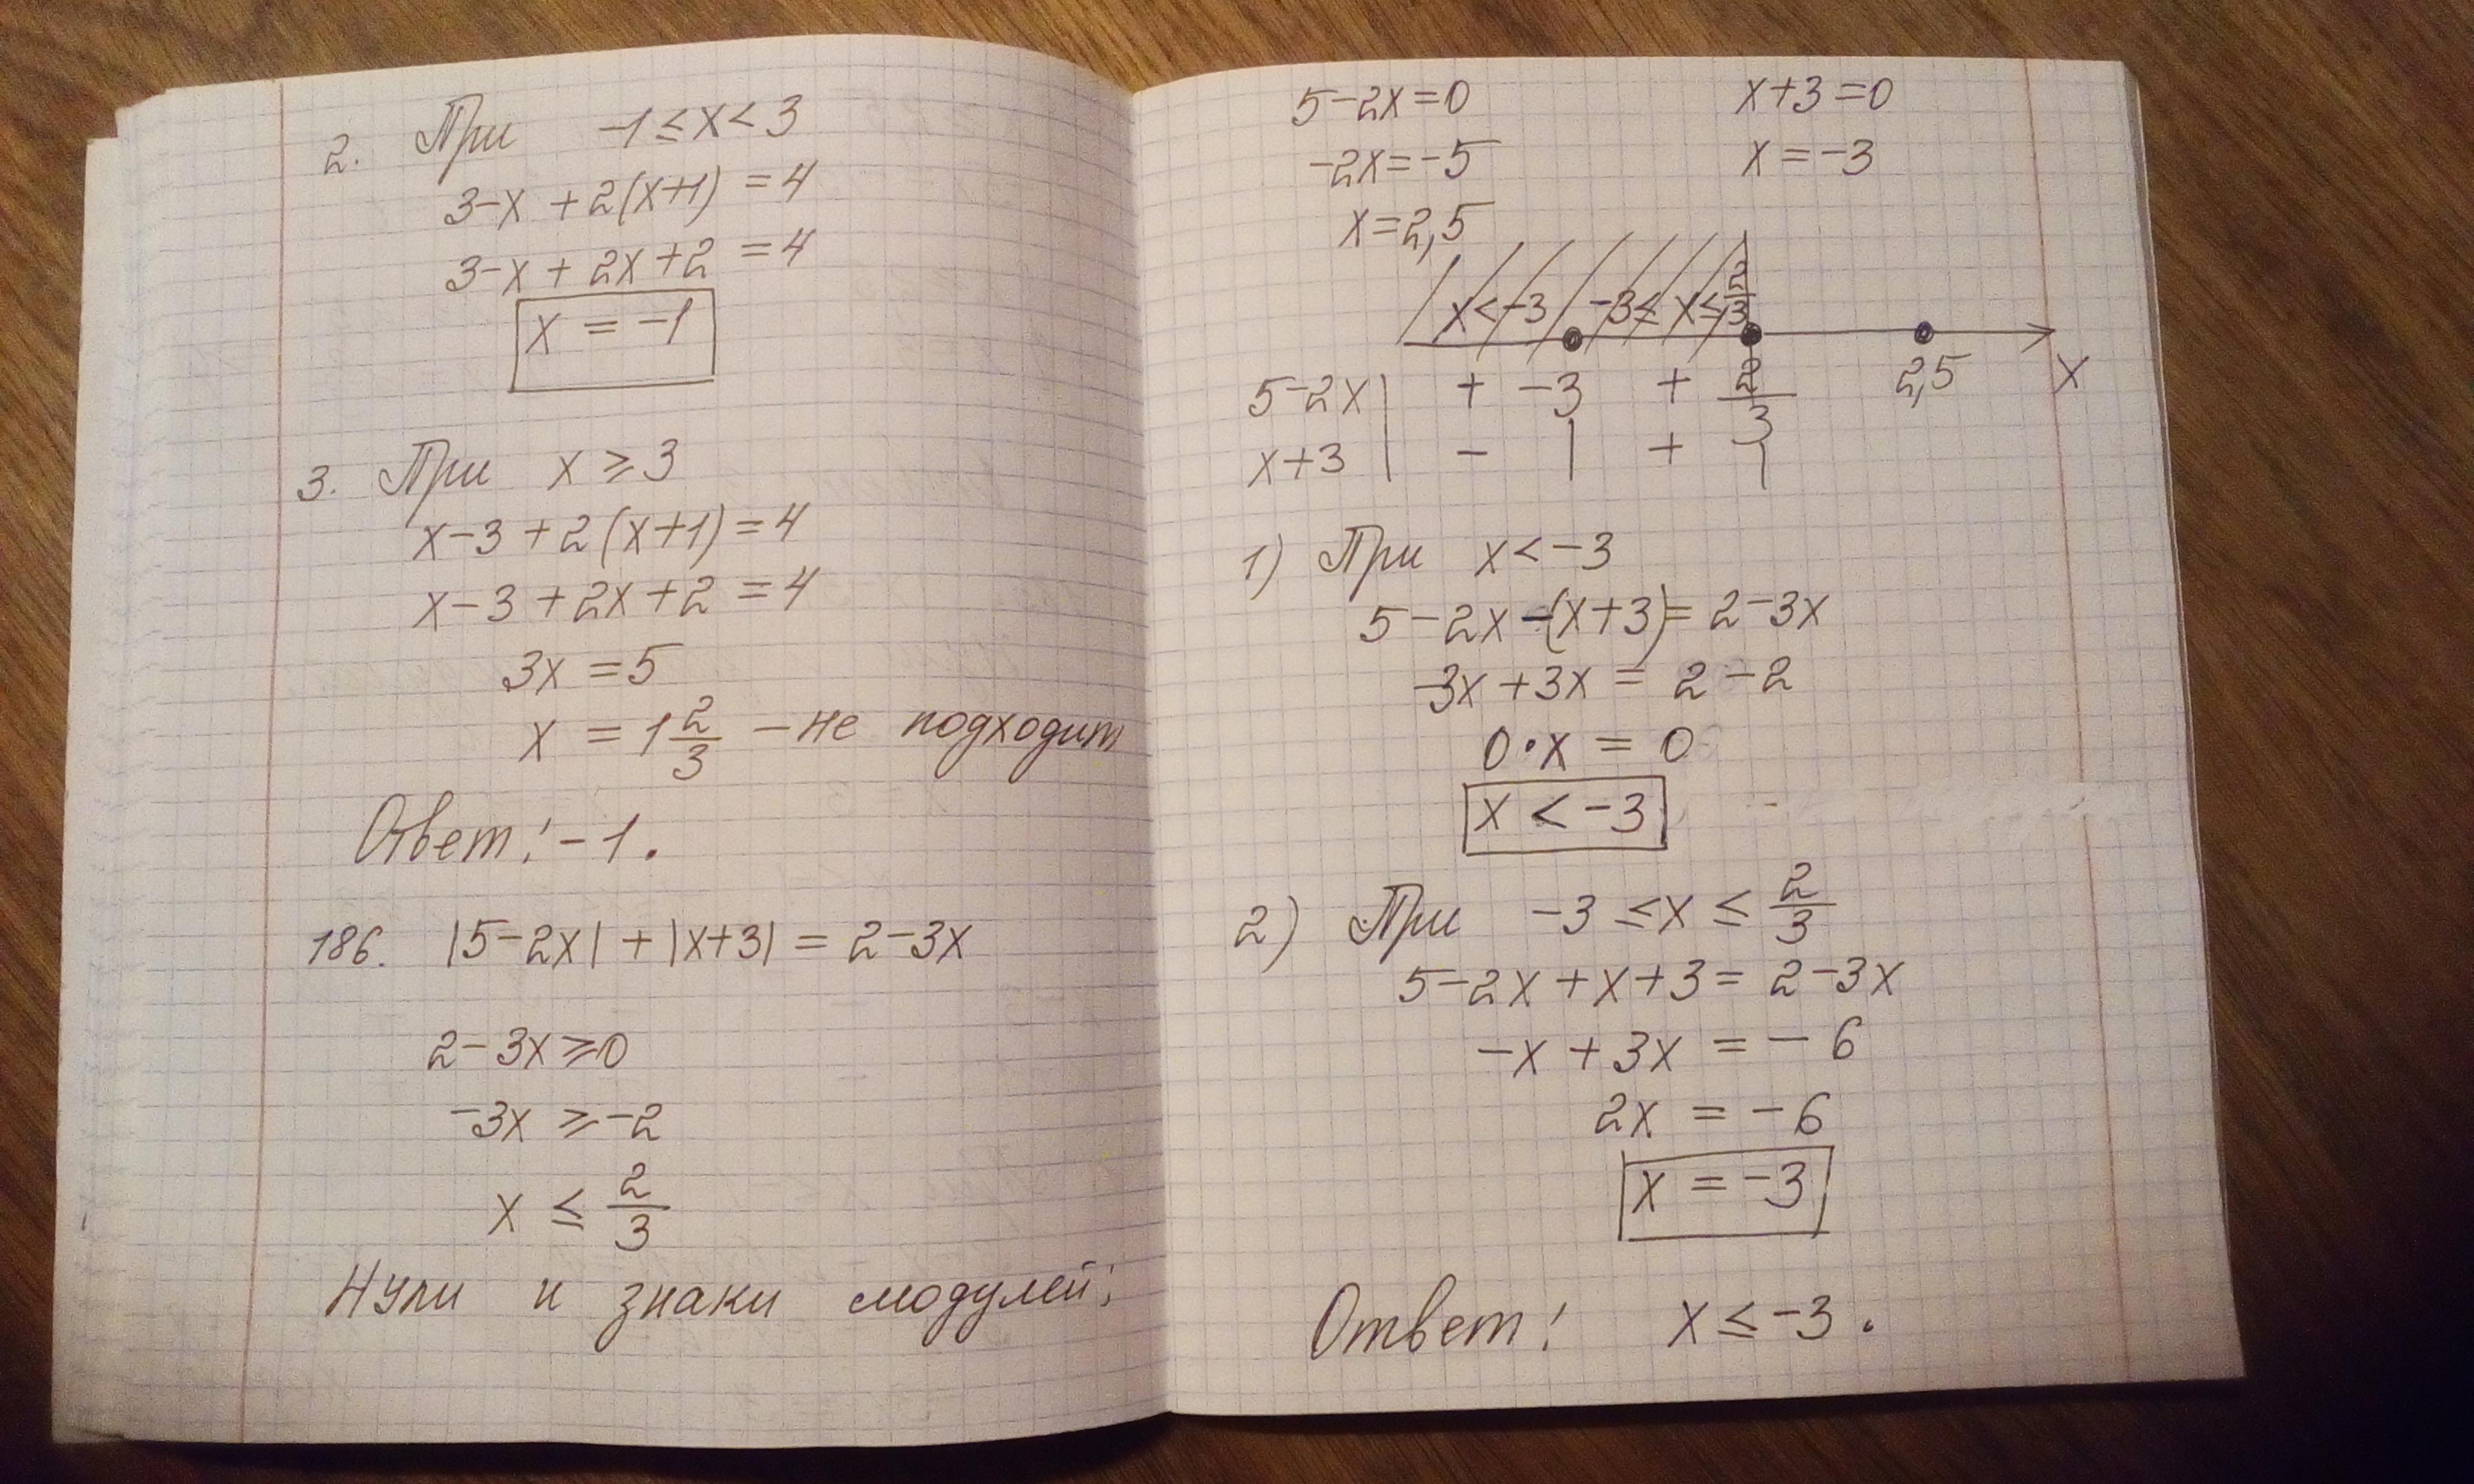 2. При -1 ≤ x < 3
3-x + 2(x+1) = 4
3-x + 2x+2 = 4
x = -1
3. При x ≥ 3
x-3 + 2(x+1) = 4
x-3 + 2x+2 = 4
3x = 5
x = 1 2/3 - не подходит
Ответ: -1.
186. |5-2x| + |x+3| = 2-3x
2-3x ≥ 0
-3x ≥ -2
x ≤ 2/3
Нули и знаки модулей:
5-2x=0 x+3=0
-2x=-5 x=-3
x=2,5
x<-3 -3≤ x≤ 2/3
5-2x | + -3 + 2/3 2,5 x
x+3 | - | + |
1) При x < -3
5-2x-(x+3) = 2-3x
-3x+3x = 2-2
0•x = 0
x < -3
2) При -3 ≤ x ≤ 2/3
5-2x+x+3 = 2-3x
-x + 3x = -6
2x = -6
x = -3
Ответ: x ≤ -3.